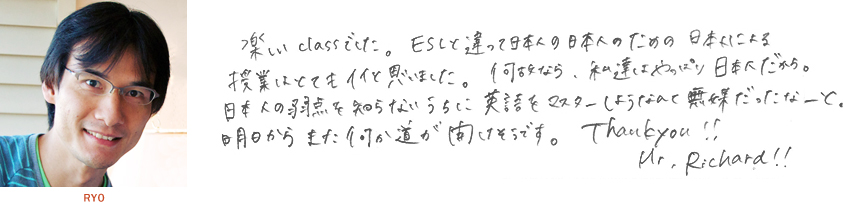 楽しいclassでした。ESLと違って日本人の日本人のための日本人による
授業はとてもイイと思いました。何故なら、私達はやっぱり日本人だから。
日本人の弱点を知らないうちに英語をマスターしようなんて無謀だったなーと。
明日からまた何か道が開けそうです。Thank you!!
Mr. Richard!!
RYO